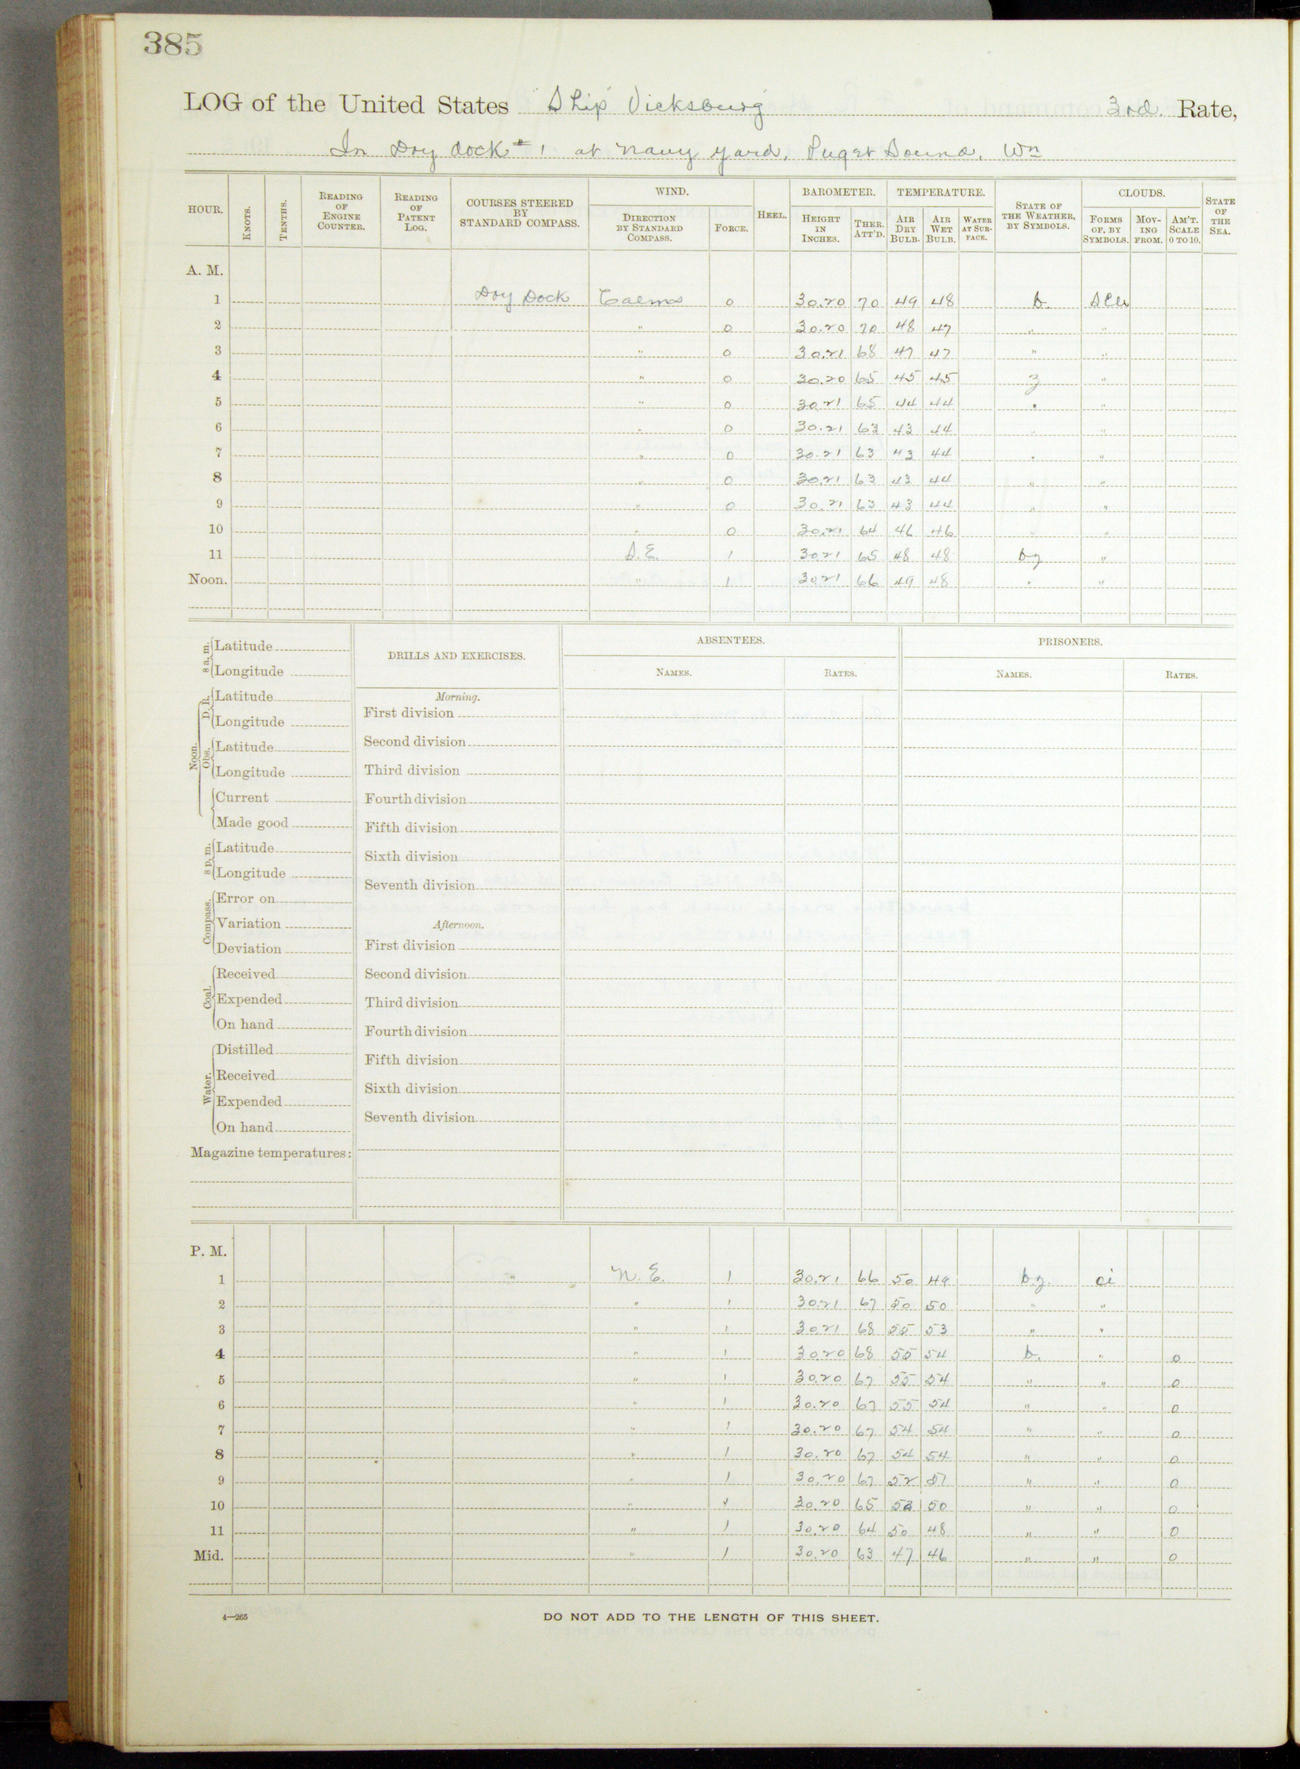 385
LOG of the United States Ship Vicksburg 3rd. Rate,
In Dry dock #1 at Navy Yard, Puget Sound, Wn
HOUR. KNOTS. TENTHS. READING OF ENGINE COUNTER. READING OF PATENT LOG. COURSES STEERED BY STANDARD COMPASS. WIND. DIRECTION BY STANDARD COMPASS. FORCE. HEEL. BAROMETER. HEIGHT IN INCHES. THER. ATT'D. TEMPERATURE. AIR DRY BULB. AIR WET BULB. WATER AT SURFACE. STATE OF THE WEATHER, BY SYMBOLS. CLOUDS. FORMS OF, BY SYMBOLS. MOVING FROM. AM'T. SCALE 0 TO 10. STATE OF THE SEA.
A. M.
1 Dry Dock Calms 0 30.20 70 49 48 b. SCu
2 " 0 30.20 70 48 47 " "
3 " 0 30.21 68 47 47 " "
4 " 0 30.20 65 45 45 z "
5 " 0 30 21 65 44 44 " "
6 " 0 30.21 63 43 44 " "
7 " 0 30.21 63 43 44 " "
8 " 0 30.21 63 43 44 " "
9 " 0 30.21 63 43 44 " "
10 " 0 30.21 64 46 46 " "
11 S.E. 1 3021 65 48 48 bz "
Noon. " 1 3021 66 49 48 " "
8 a. m. Latitude
Longitude
Noon. D. R. Latitude
Longitude
Obs. Latitude
Longitude
Current
Made good
8 p. m. Latitude
Longitude
Compass. Error on
Variation
Deviation
Coal. Received
Expended
On hand
Water. Distilled
Received
Expended
On hand
Magazine temperatures:
DRILLS AND EXERCISES.
Morning.
First division
Second division
Third division
Fourth division
Fifth division
Sixth division
Seventh division
Afternoon.
First division
Second division
Third division
Fourth division
Fifth division
Sixth division
Seventh division
ABSENTEES.
NAMES. RATES.
PRISONERS.
NAMES. RATES.
P. M.
1 " N. E. 1 30.21 66 50 49 b.z. ci
2 " 1 3021 67 50 50 " "
3 " 1 3021 68 55 53 " "
4 " 1 3020 68 55 54 b. " 0
5 " 1 30.20 67 55 54 " " 0
6 " 1 30.20 67 55 54 " " 0
7 " 1 30.20 67 54 54 " " 0
8 " 1 30.20 67 54 54 " " 0
9 " 1 30.20 67 52 51 " " 0
10 " 30.20 65 52 50 " " 0
11 " 1 30.20 64 50 48 " " 0
Mid. " 1 30.20 63 47 46 " " 0
4—265
DO NOT ADD TO THE LENGTH OF THIS SHEET.